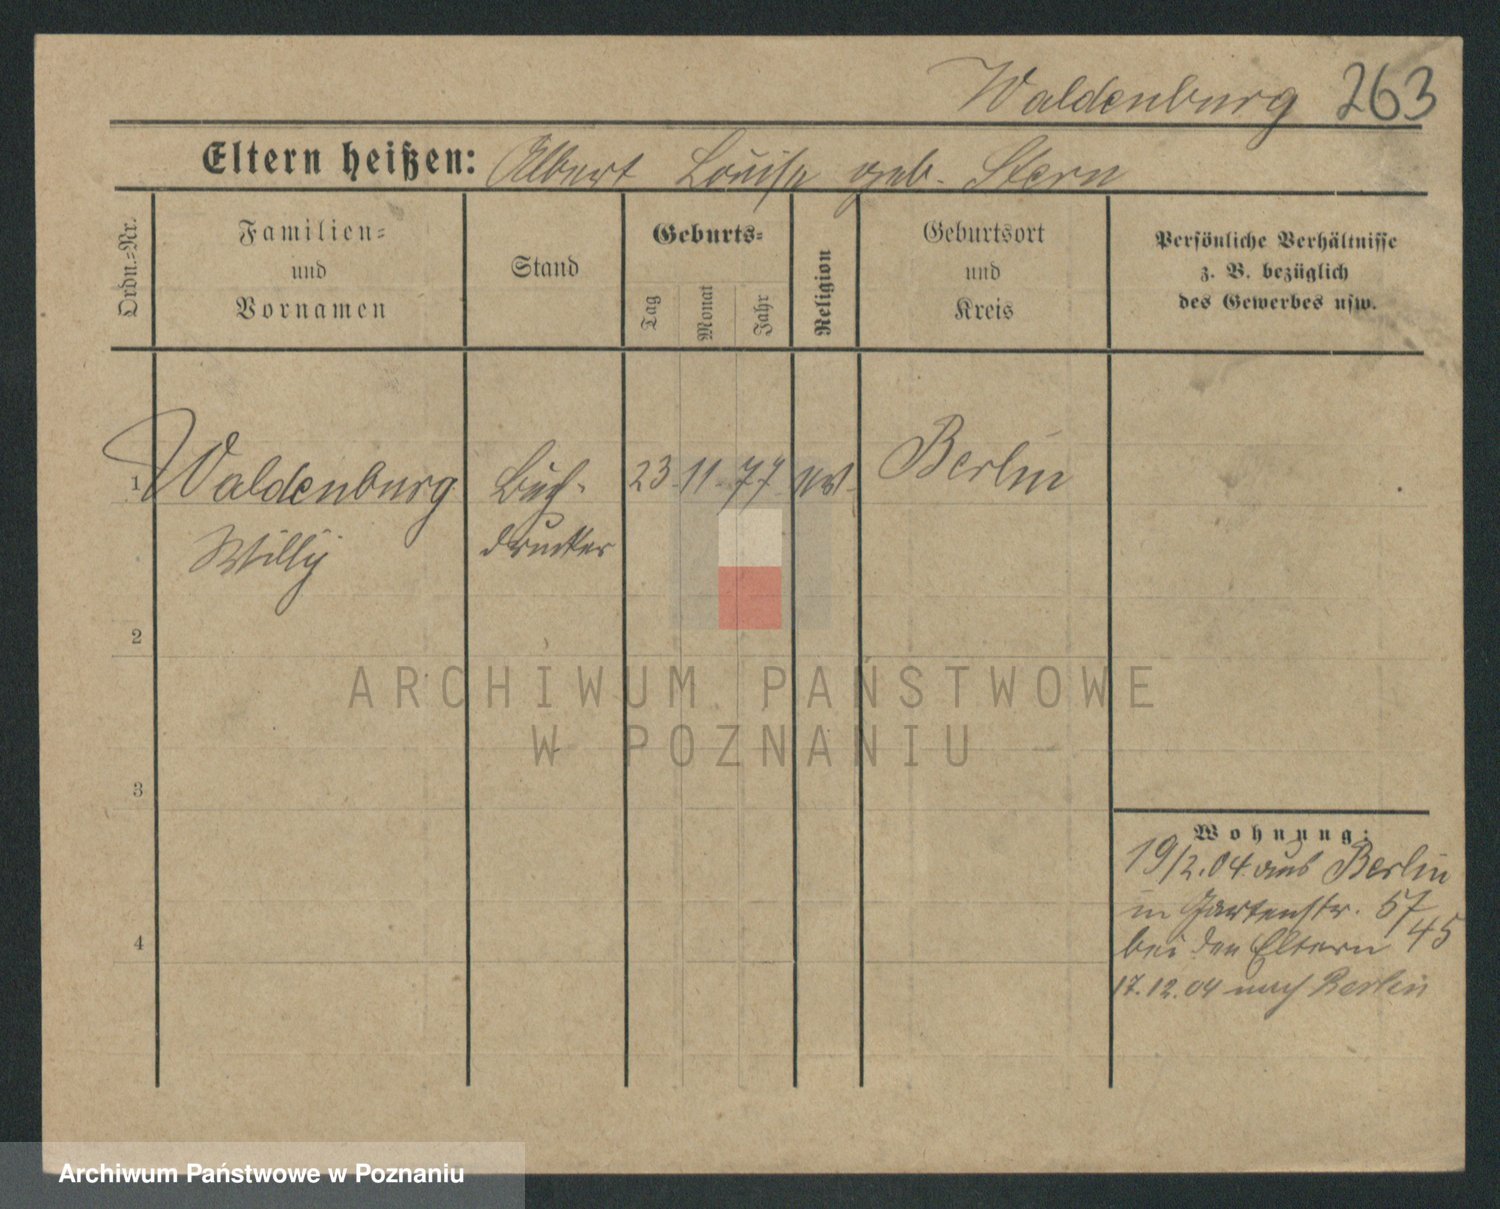 Waldenburg 263
Eltern heißen: Albert Louise geb. Stern
Ordn.-Nr.
Familien=
und
Vornamen
Stand
Geburts=
Tag
Monat
Jahr
Religion
Geburtsort
und
Kreis
Persönliche Verhältnisse
z. B. bezüglich
des Gewerbes usw.
1 Waldenburg Buch- 23. 11. 77. Berlin
Willy drucker
2
3
4
Wohnung:
19/2.04. aus Berlin
in Gartenstr. 57/45
bei den Eltern
17.12.04 nach Berlin
ARCHIWUM PAŃSTWOWE
W POZNANIU
Archiwum Państwowe w Poznaniu